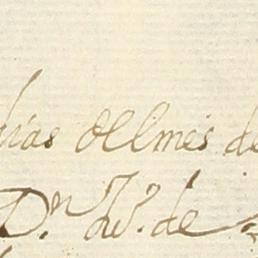 dias del mes de
Dn. Lu. de